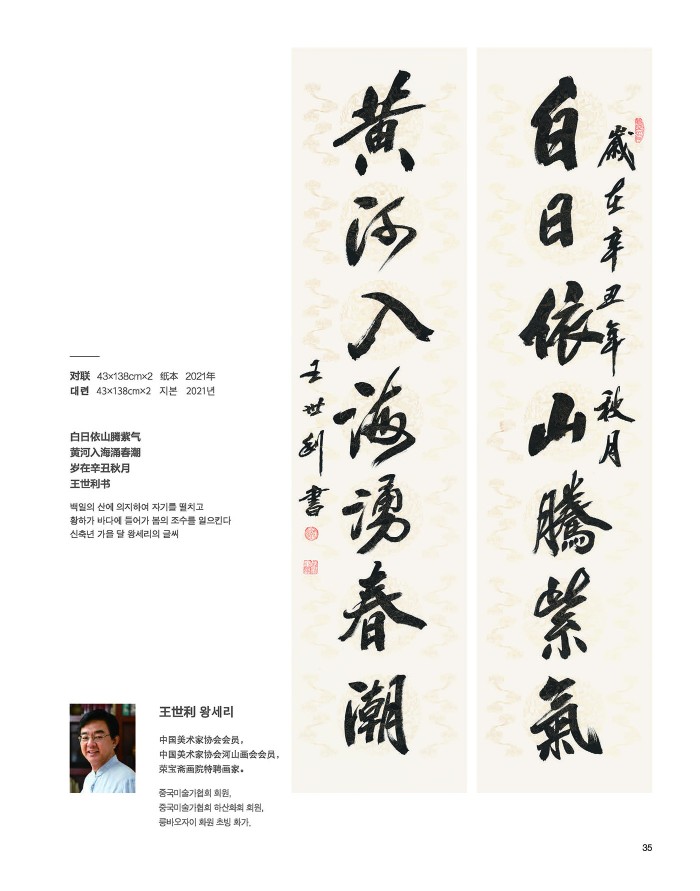 歲在辛丑年秋月
白日依山騰紫氣
黄河入海湧春潮
王世利書
对联 43×138cm×2 纸本 2021年
대련 43×138cm×2 지본 2021년
白日依山腾紫气
黄河入海涌春潮
岁在辛丑秋月
王世利书
백일의 산에 의지하여 자기를 떨치고
황하가 바다에 들어가 봄의 조수를 일으킨다
신축년 가을 달 왕세리의 글씨
王世利 왕세리
中国美术家协会会员，
中国美术家协会河山画会会员，
荣宝斋画院特聘画家。
중국미술가협회 회원,
중국미술가협회 하산화회 회원,
룽바오자이 화원 초빙 화가.
35